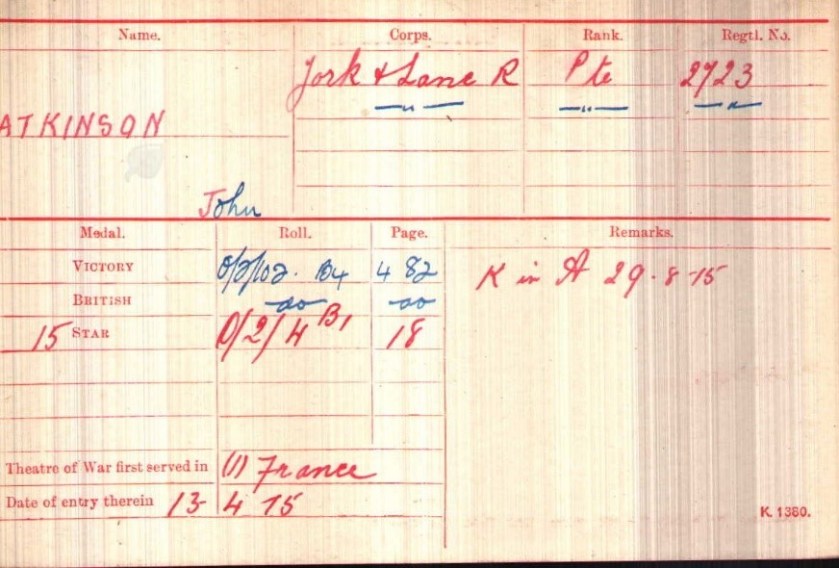 Name. Corps. Rank. Regtl. No.
York & Lanc R Pte 2723
" " "
ATKINSON
John
Medal. Roll. Page. Remarks.
VICTORY O/2/102. B4 482 K in A 29-8-15
BRITISH do do
15 STAR O/2/4 B1 18
Theatre of War first served in (1) France
Date of entry therein 13-4 15
K. 1380.